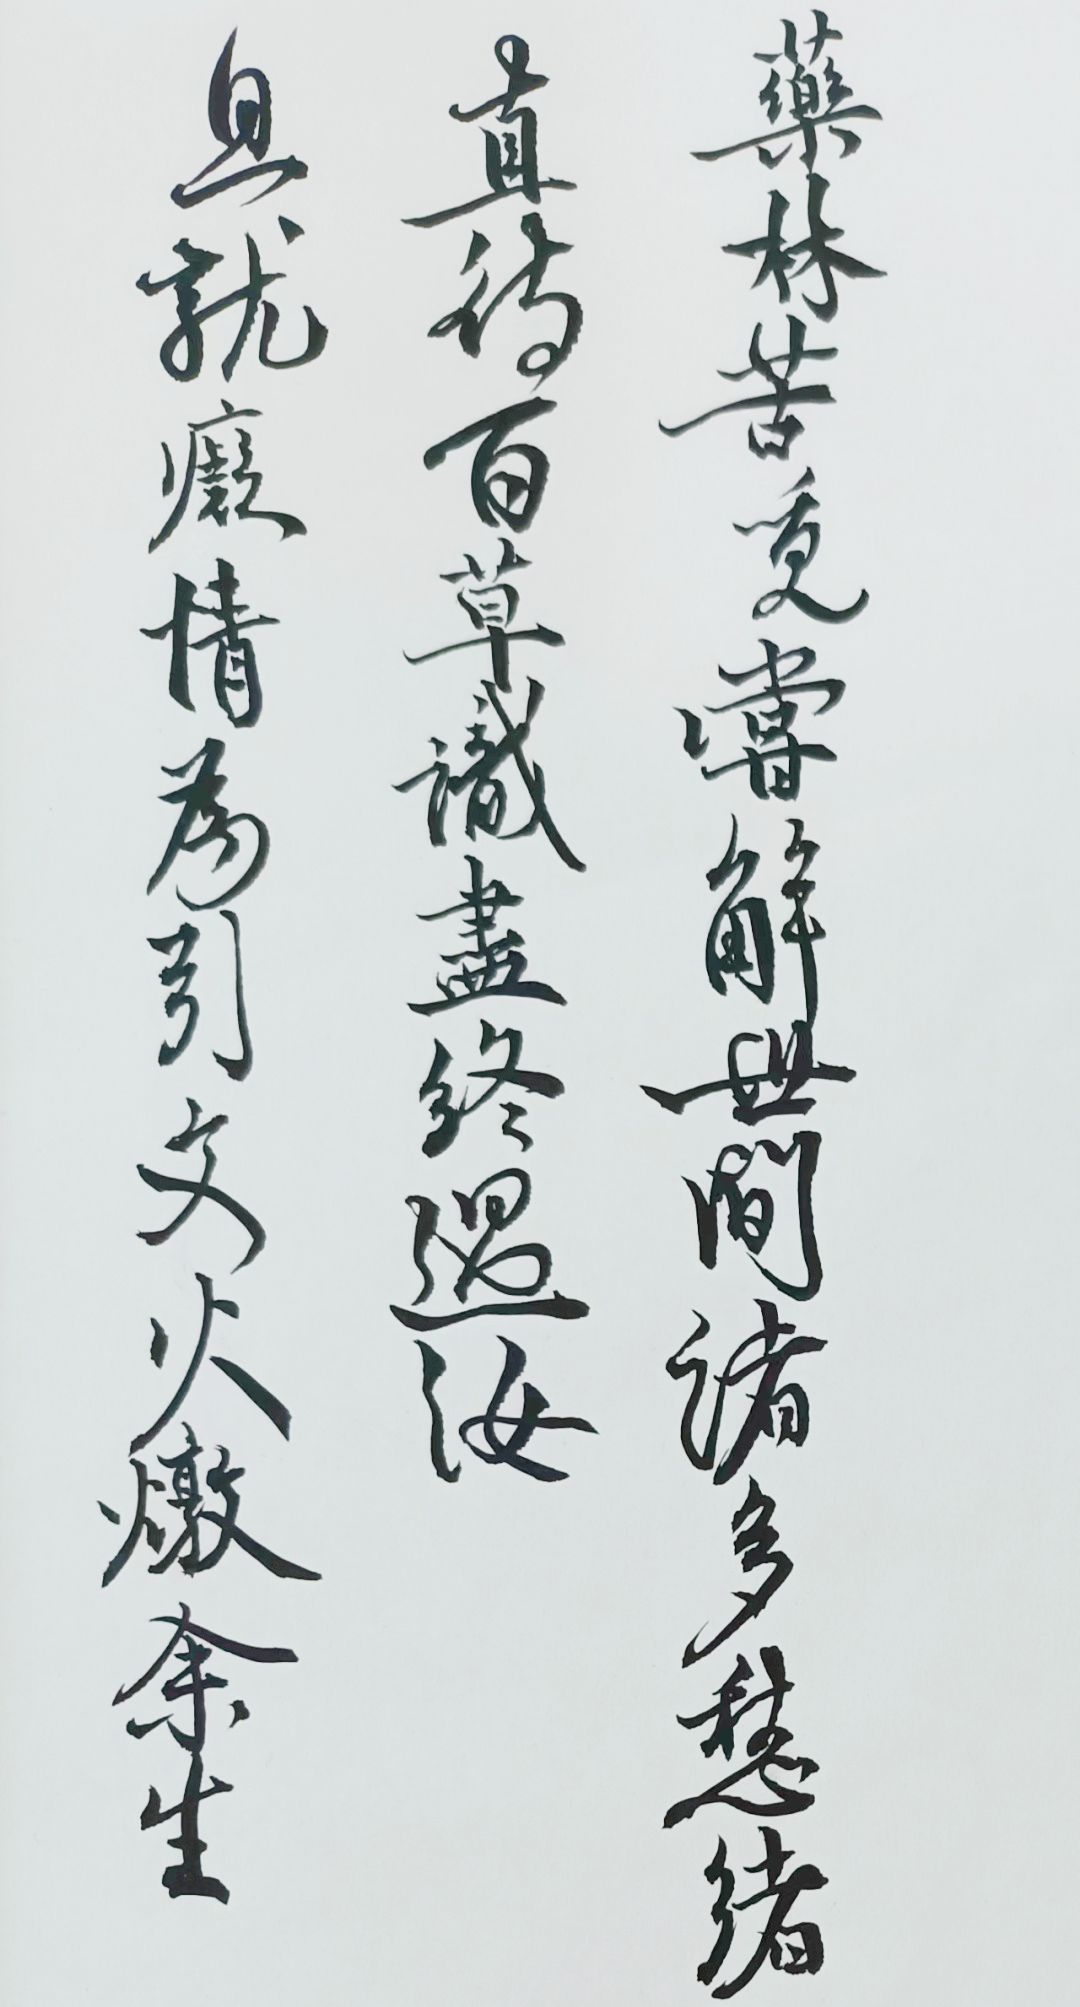 藥林苦覓嘗解世間諸多愁緒
直待百草識盡終遇汝
且就癡情為引文火燉余生